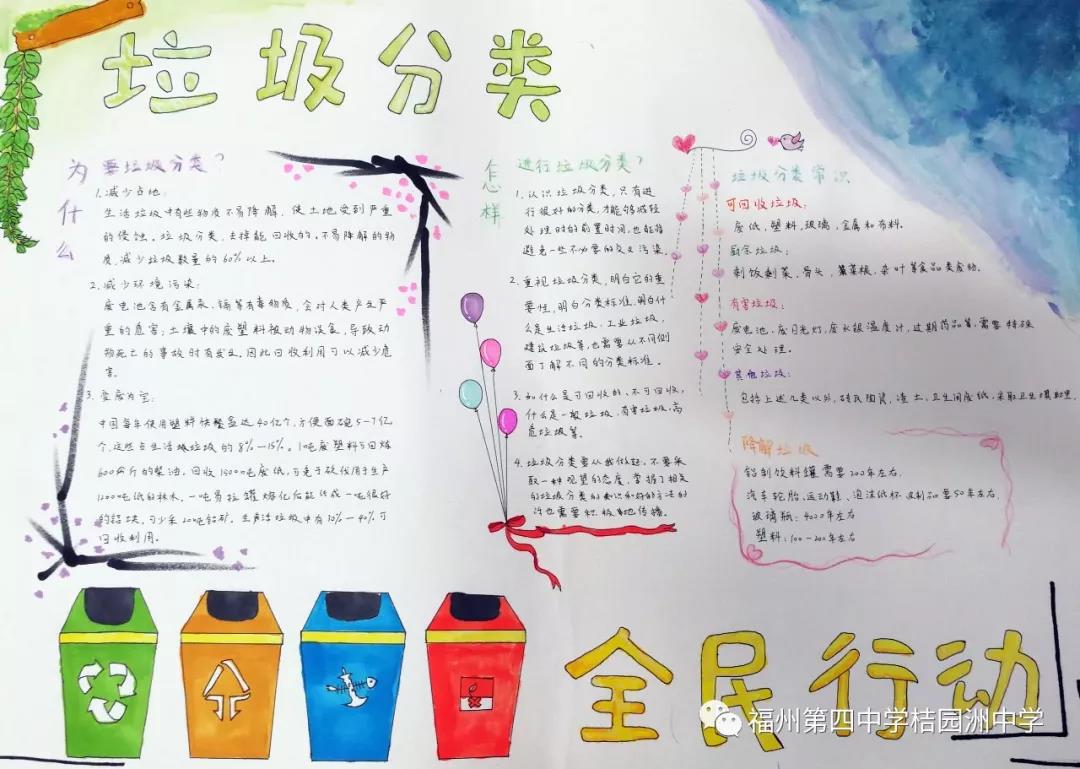 垃圾分类
为什么要垃圾分类?
1.减少占地:
生活垃圾中有些物质不易降解,使土地受到严重
的侵蚀。垃圾分类,去掉能回收的、不易降解的物
质,减少垃圾数量的60%以上。
2.减少环境污染:
废电池含有金属汞、镉等有毒物质,会对人类产生严
重的危害;土壤中的废塑料被动物误食,导致动
物死亡的事故时有发生。因此回收利用可以减少危
害。
3.变废为宝:
中国每年使用塑料快餐盒达40亿个,方便面碗5-7亿
个,这些占生活垃圾的8%-15%。1吨废塑料可回炼
600公斤的柴油。回收1500吨废纸,可免于砍伐用于生产
1200吨纸的林木。一吨易拉罐熔化后能结成一吨很好
的铝块,可少采20吨铝矿。生产活垃圾中有30%-40%可
回收利用。
怎样进行垃圾分类?
1.认识垃圾分类,只有进
行很好的分类,才能够减轻
处理时的前置时间,也能够
避免一些不必要的交叉污染。
2.重视垃圾分类,明白它的重
要性,明白分类标准,明白什
么是生活垃圾、工业垃圾,
建筑垃圾等,也需要从不同侧
面了解不同的分类标准。
3.如什么是可回收的、不可回收,
什么是一般垃圾,有害垃圾,高
危垃圾等。
4.垃圾分类要从我做起,不要采
取一种观望的态度,掌握了相关
的垃圾分类的知识和好的方法的
许也需要积极地传播。
垃圾分类常识
可回收垃圾:
废纸,塑料,玻璃,金属和布料。
厨余垃圾:
剩饭剩菜,骨头,菜根,菜叶等食品类废物。
有害垃圾:
废电池,废日光灯,废水银温度计,过期药品等,需要特殊
安全处理。
其他垃圾:
包括上述几类以外,砖瓦陶瓷,渣土,卫生间废纸,采取卫生填埋
降解垃圾
铝制饮料罐需要200年左右,
汽车轮胎,运动鞋,泡沫纸杯,制品要50年左右,
玻璃瓶:4000年左右
塑料:100-200年左右
全民行动
福州第四中学桔园洲中学